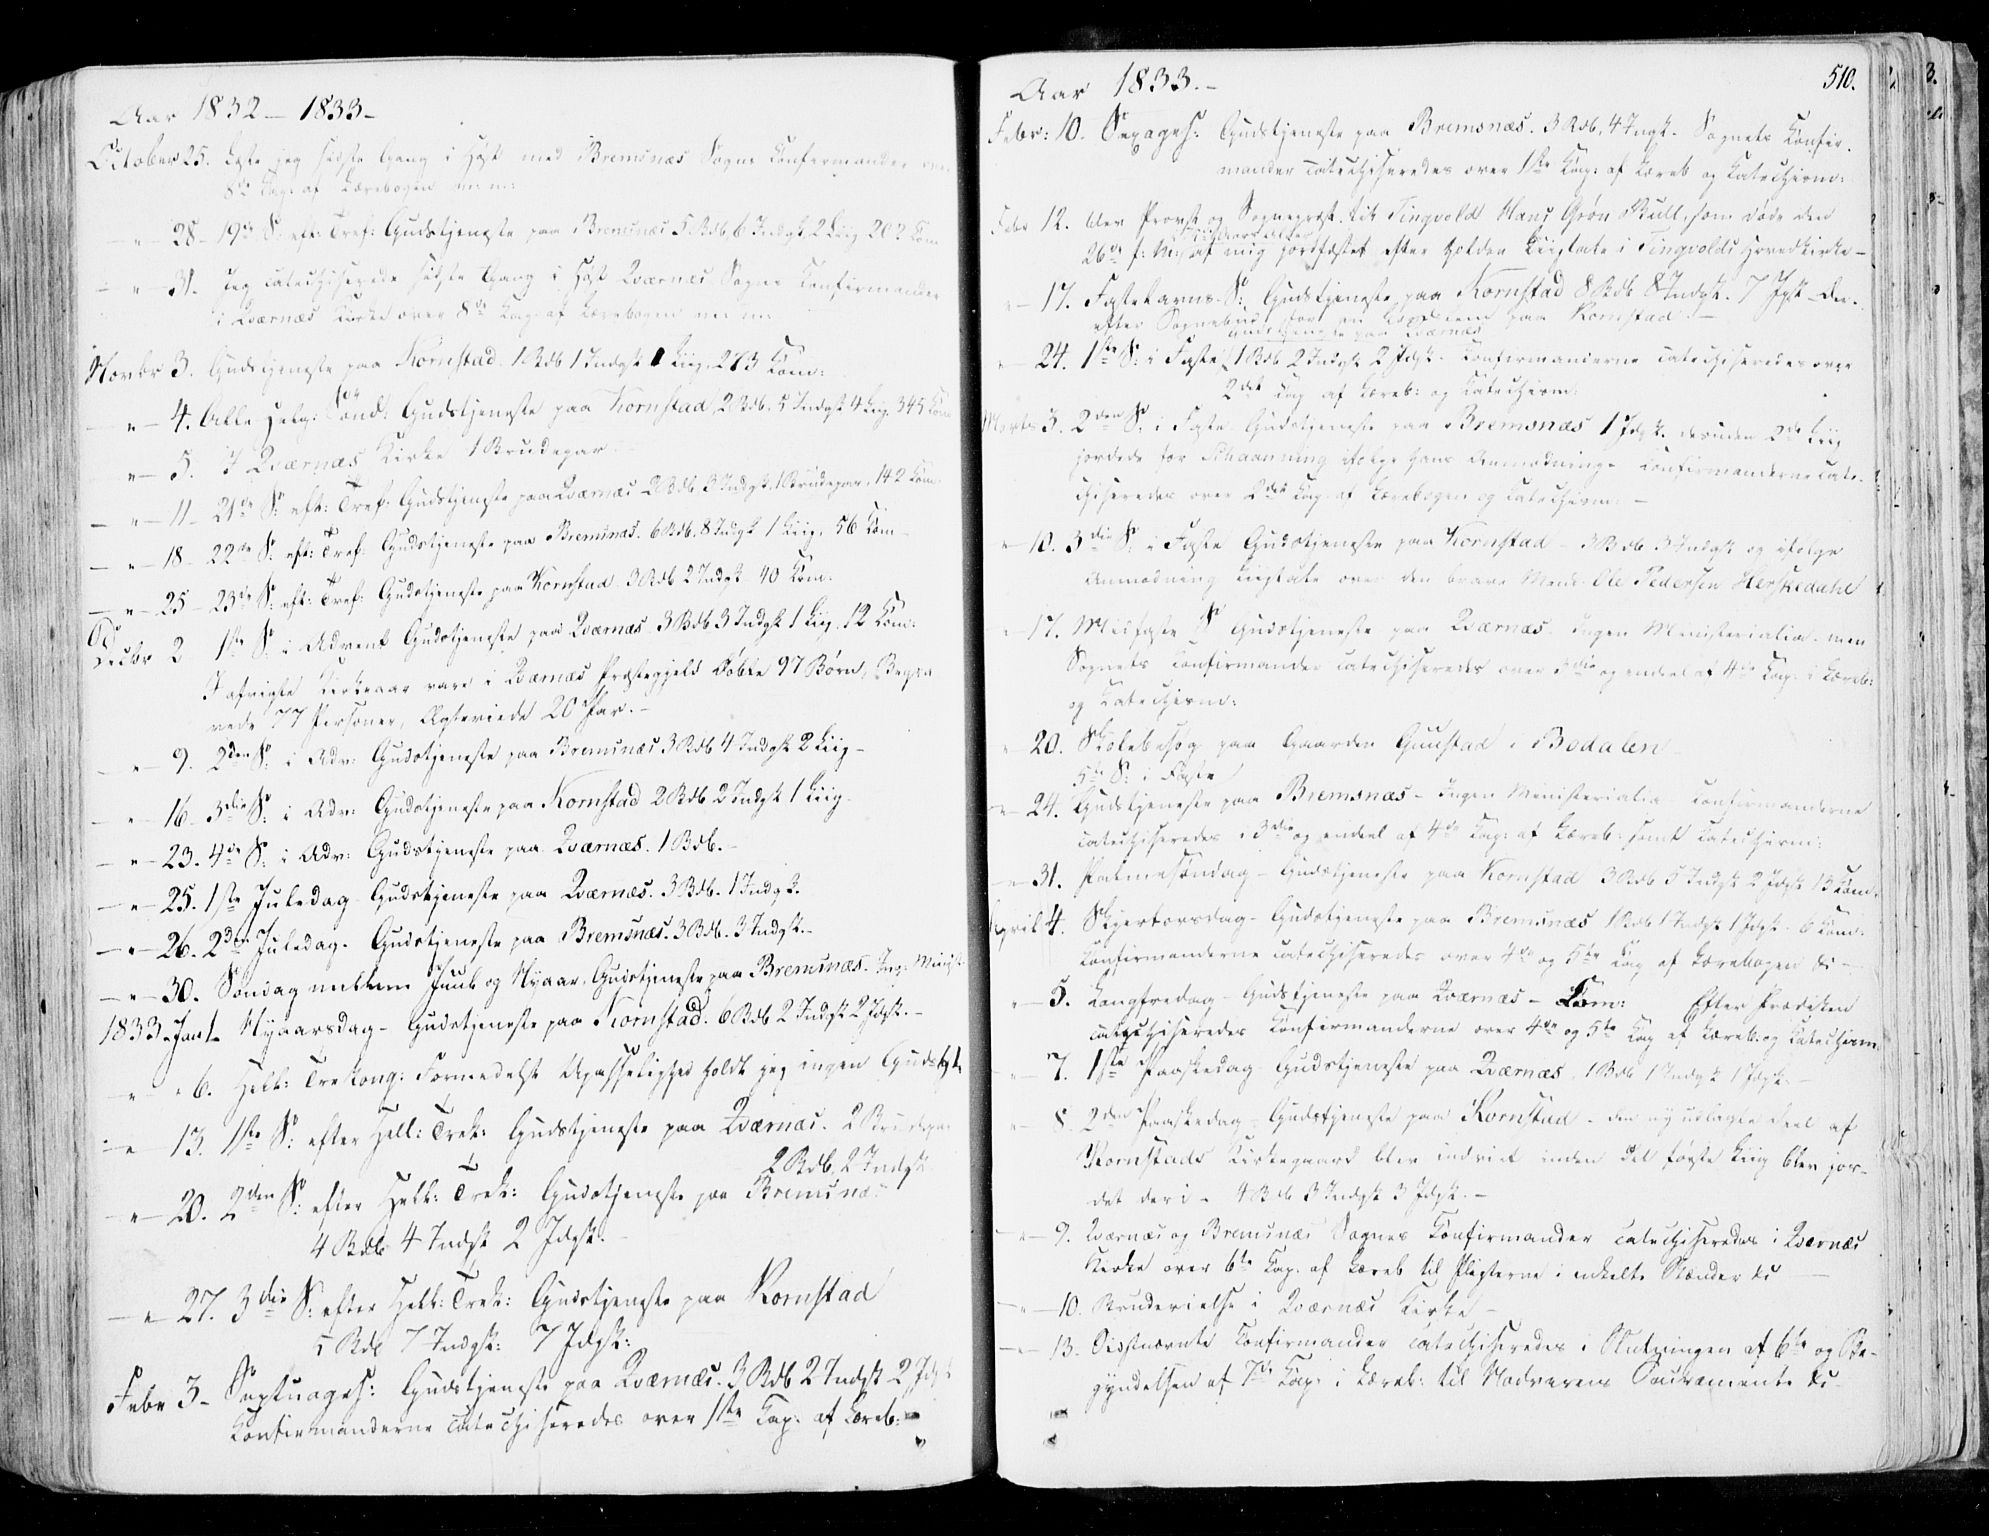 Aar 1832 – 1833 –
October 25. læste jeg sidste Gang i Høst med Bremsnæs Sogns Confirmander over
8de Cap: af Lærebogen m: m:
– " – 28 – 19de S: eft: Tref: Gudstjeneste paa Bremsnæs 5 Bdb 6 Indgk, 2 Liig 202 Com
– " – 31. Jeg catechiserede sidste Gang i Høst Qværnæs Sogns Confirmander
i Qværnæs Kirke over 8de Cap. af Lærebogen m: m:
Novbr 3. Gudstjeneste paa Kornstad. 1 Bdb 1 Indgk 1 Liig, 273 Com:
– " – 4. Alle Helg: Sønd: Gudstjeneste paa Kornstad, 2 Bdb. 5 Indgk 4 Liig 345 Com
– " – 5. I Qværnæs Kirke 1 Brudepar –
– " – 11 – 21de S: eft: Tref: Gudstjeneste paa Qværnæs 2 Bdb 3 Indgk, 1 Brudepar, 142 Com.
– " – 18 – 22de S: eft: Tref: Gudstjeneste paa Bremsnæs. 6 Bdb. 8 Indgk 1 Liig, 56 Com –
– " – 25 – 23de S: eft: Tref: Gudstjeneste paa Kornstad. 3 Bdb 2 Indgk 40 Com:
Decbr 2 1ste S: i Advent Gudstjeneste paa Qværnæs. 3 Bdb 3 Indgk 1 Liig, 12 Com:
I afvigte Kirkeaar vare i Qværnæs Præstegjeld Døbte 97 Børn, Begra
vede 77 Personer, Ægteviede 20 Par. –
– " – 9. 2den S: i Adv: Gudstjeneste paa Bremsnæs 3 Bdb 4 Indgk 2 Liig –
– " – 16 – 3die S: i Adv: Gudstjeneste paa Kornstad 2 Bdb 2 Indgk 1 Liig –
– " – 23. 4de S: i Adv: Gudstjeneste paa Qværnæs. 1 Bdb. –
– " – 25. 1ste Juledag Gudstjeneste paa Qværnæs. 3 Bdb. 1 Indgk.
– " – 26. 2den Juledag. Gudstjeneste paa Bremsnæs. 3 Bdb. 3 Indgk. –
– " – 30. Søndag mellem Juul og Nyaar. Gudstjeneste paa Bremsnæs. Ing: Minist
1833 Jan 1. Nyaarsdag – Gudstjeneste paa Kornstad. 6 Bdb 2 Indgk 2 Jdgk. –
" " 6. Hell: Trekong: Formedelst Upasselighed holdt jeg ingen Gudstjt
– " – 13. 1ste S: efter Hell: Trek: Gudstjeneste paa Qværnæs. 2 Brudepar
2 Bdb, 2 Indgk
– " – 20. 2den S: efter Hell: Trek: Gudstjeneste paa Bremsnæs
4 Bdb 4 Indgk 2 Jdgk. –
– " – 27. 3die S: efter Hell: Trek: Gudstjeneste paa Kornstad
5 Bdb 7 Indgk: 7 Jdgk:
Febr 3 – Septuages: Gudstjeneste paa Qværnæs. 3 Bdb 2 Indgk 2 Jdgk
Confirmanderne catechiseredes over 1ste Cap: af Læreb:
Aar 1833. –
510.
Febr: 10. Sexages: Gudstjeneste paa Bremsnæs. 3 Bdb. 4 Ingk. – Sognets Confir-
mander catechiseredes over 1ste Cap: af Læreb og Catechism:
Febr 12. blev Provst og Sognepræst til Tingvold Hans Grøn Bull, som døde den
26de f: M: af mig jordfæstet efter holden Liigtale i Tingvolds Hovedkirke –
" – 17. Fastelavns S: Gudstjeneste paa Kornstad 8 Bdb 8 Indgk. 7 Jgk – Der-
efter Sognebud for en paa Kornstad. –
Gudstjeneste paa Qværnæs
" 24. 1ste S: i Faste 1 Bdb 2 Indgk 2 Jdgk. Confirmanderne catechiseredes over
2det Cap af Læreb: og Catechism:
Marts 3. 2den S: i Faste Gudstjeneste paa Bremsnæs 1 Jdgk. desuden 2de Liig
jordede for Schaanning ifølge hans Anmodning – Confirmanderne cate-
chiseredes over 2det Cap. af Lærebogen og Catechism: –
" – 10. 3die S: i Faste Gudstjeneste paa Kornstad – 3 Bdb 3 Indgk og ifølge
Anmodning Liigtale over den brave Mand Ole Pedersen Herskedahl
" – 17. Midfaste S Gudstjeneste paa Qværnæs – Ingen Ministerialia – men
Sognets Confirmander catechiseredes over 3die og endeel af 4de Cap: i Læreb:
og Catechism:
" 20. Skolebesøg paa Gaarden Guustad i Bodalen
5te S: i Faste
– " – 24. Gudstjeneste paa Bremsnæs – Ingen Ministerialia Confirmanderne
catechiseredes i 3die og endeel af 4de Cap: af Læreb: samt Catechism:
– " – 31. Palmesøndag – Gudstjeneste paa Kornstad 3 Bdb 5 Indgk 2 Jdgk 13 Com.
April 4. Skjertorsdag – Gudstjeneste paa Bremsnæs 1 Bdb 1 Indgk 1 Jdgk. 6 Com:
Confirmanderne catechiseredes over 4de og 5te Cap af Lærebogen &c –
" – 5. Langfredag – Gudstjeneste paa Qværnæs – Com: Efter Prædiken
catechiseredes Confirmanderne over 4de og 5te Cap af Læreb. og Catechism.
" – 7. 1ste Paaskedag – Gudstjeneste paa Qværnæs, 1 Bdb 1 Indgk 1 Jdgk. –
" – 8. 2den Paaskedag – Gudstjeneste paa Kornstad – den ny udlagte deel af
Kornstads Kirkegaard blev indviet inden det første Liig blev jor-
det deri – 4 Bdb 3 Indgk 3 Jdgk. –
– " – 9. Qværnæs og Bremsnæs Sognes Confirmander catechiseredes i Qværnæs
Kirke over 6te Cap. af Læreb til Pligterne i enkelte Stænder &c
– " – 10. Brudevielse i Qværnæs Kirke –
– " – 13. Sidstnævnte Confirmander catechiseredes i Slutningen af 6te og Be-
gyndelsen af 7de Cap: i Læreb: til Nadverens Sacramente &c –